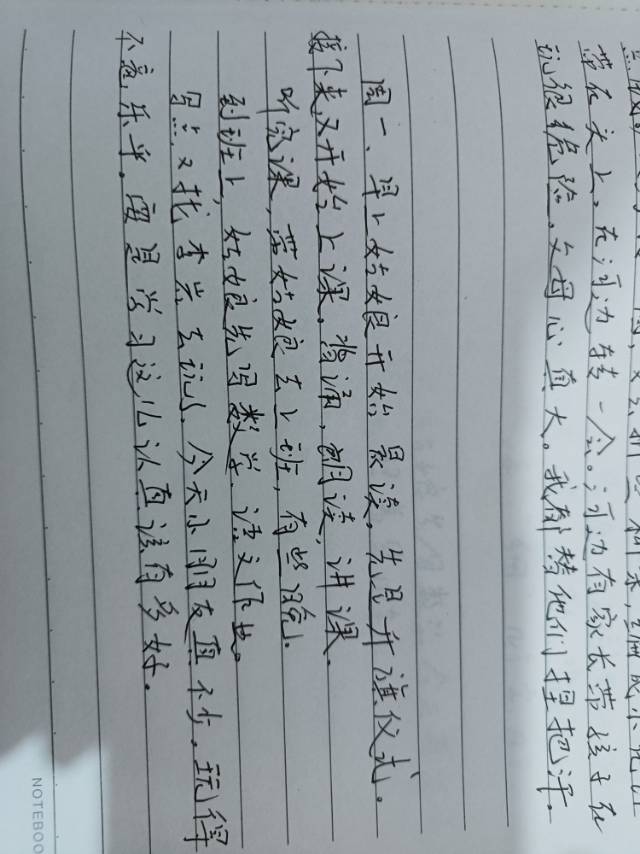 带在头上。在河边转一会。河边有家长带孩子在
玩很危险，父母心真大。我都替他们捏把汗。
周一、早上姑娘开始晨读。先是升旗仪式。
接下来又开始上课。背诵，朗读，讲课。
听完课，带姑娘去上班，有些晚。
到班上，姑娘先写数学、语文作业。
写完又找李芸去玩，今天小朋友真不少。玩得
不亦乐乎。要是学习这么认真该有多好。
NOTEBOO